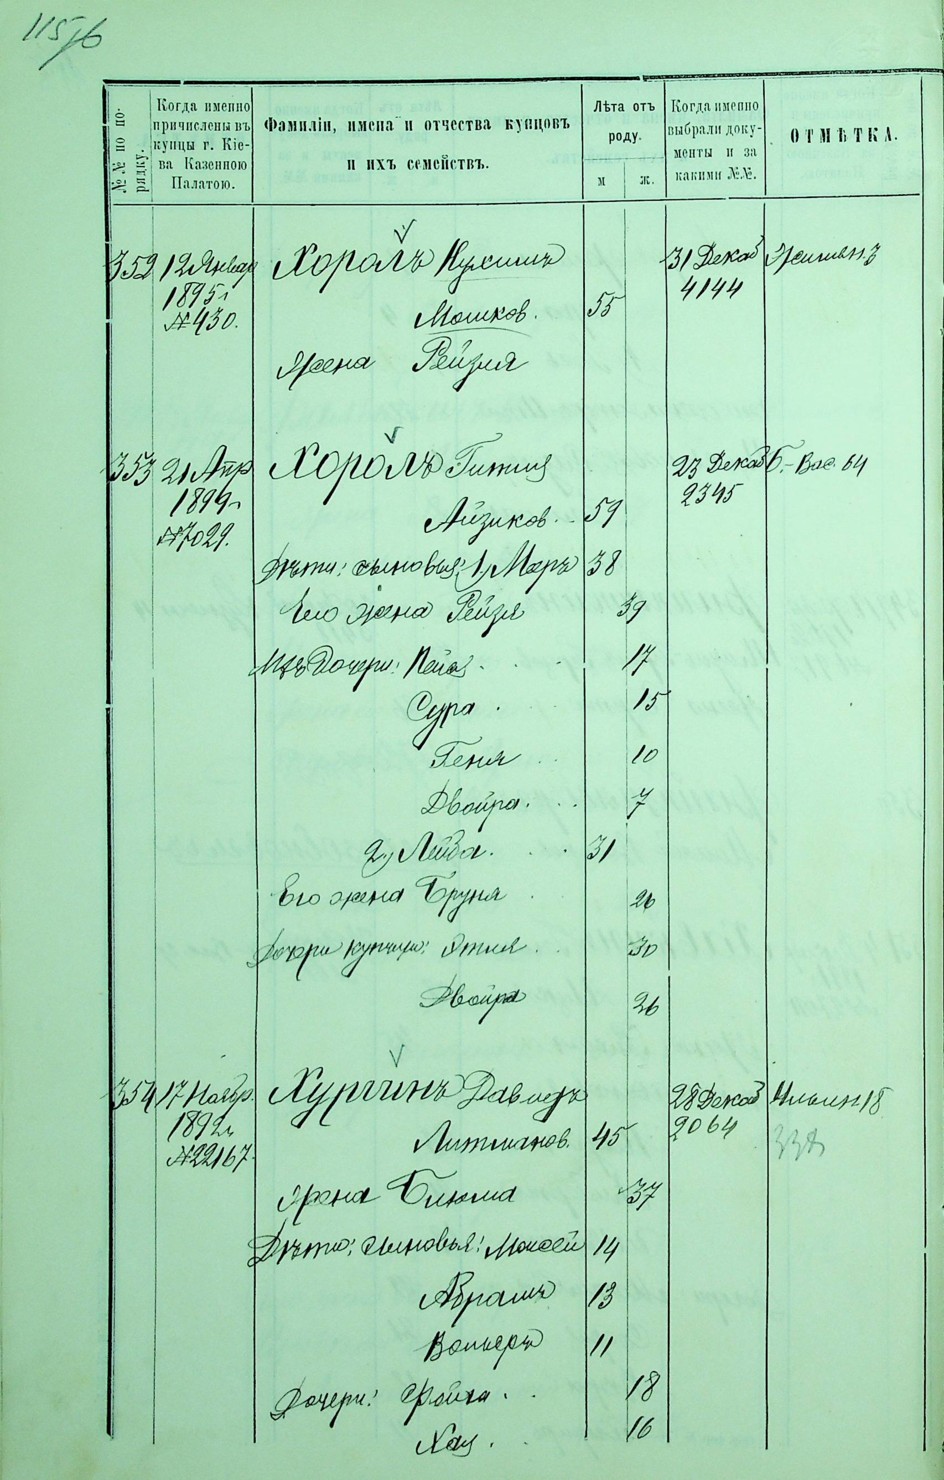 115 об
№№ по по-
рядку.
Когда именно
причислены въ
купцы г. Кіе-
ва Казенною
Палатою.
Фамиліи, имена и отчества купцовъ
и ихъ семействъ.
Лѣта отъ
роду.
м ж.
Когда именно
выбрали доку-
менты и за
какими №№.
ОТМѢТКА.
352 12 Январ Хоролъ 31 Декаб
1895 г 4144
№ 430. Мошков. 55
Жена Рейзля
353 21 Апр Хоролъ Гитля 23 Декаб Б.-Вас. 64
1899 г 2345
№ 7029. Айзиков. 59
Дѣти: сыновья: 1) Меръ 38
Его жена Рейзя 39
Ихъ Дочери: Пейся 17
Сура 15
Геня 10
Двойра 7
2) Лейба 31
Его жена Бруня 26
Дочери купчихи: Этля 30
Двойра 26
354 17 Ноябр. Хургинъ Давидъ 28 Декаб Ильин. 18
1892 г 2064
№ 22167. Литманов. 45
Жена Блюма 37
Дѣти: Сыновья: Моисей 14
Абрамъ 13
Вольфъ 11
Дочери: Фейга 18
Хая 16